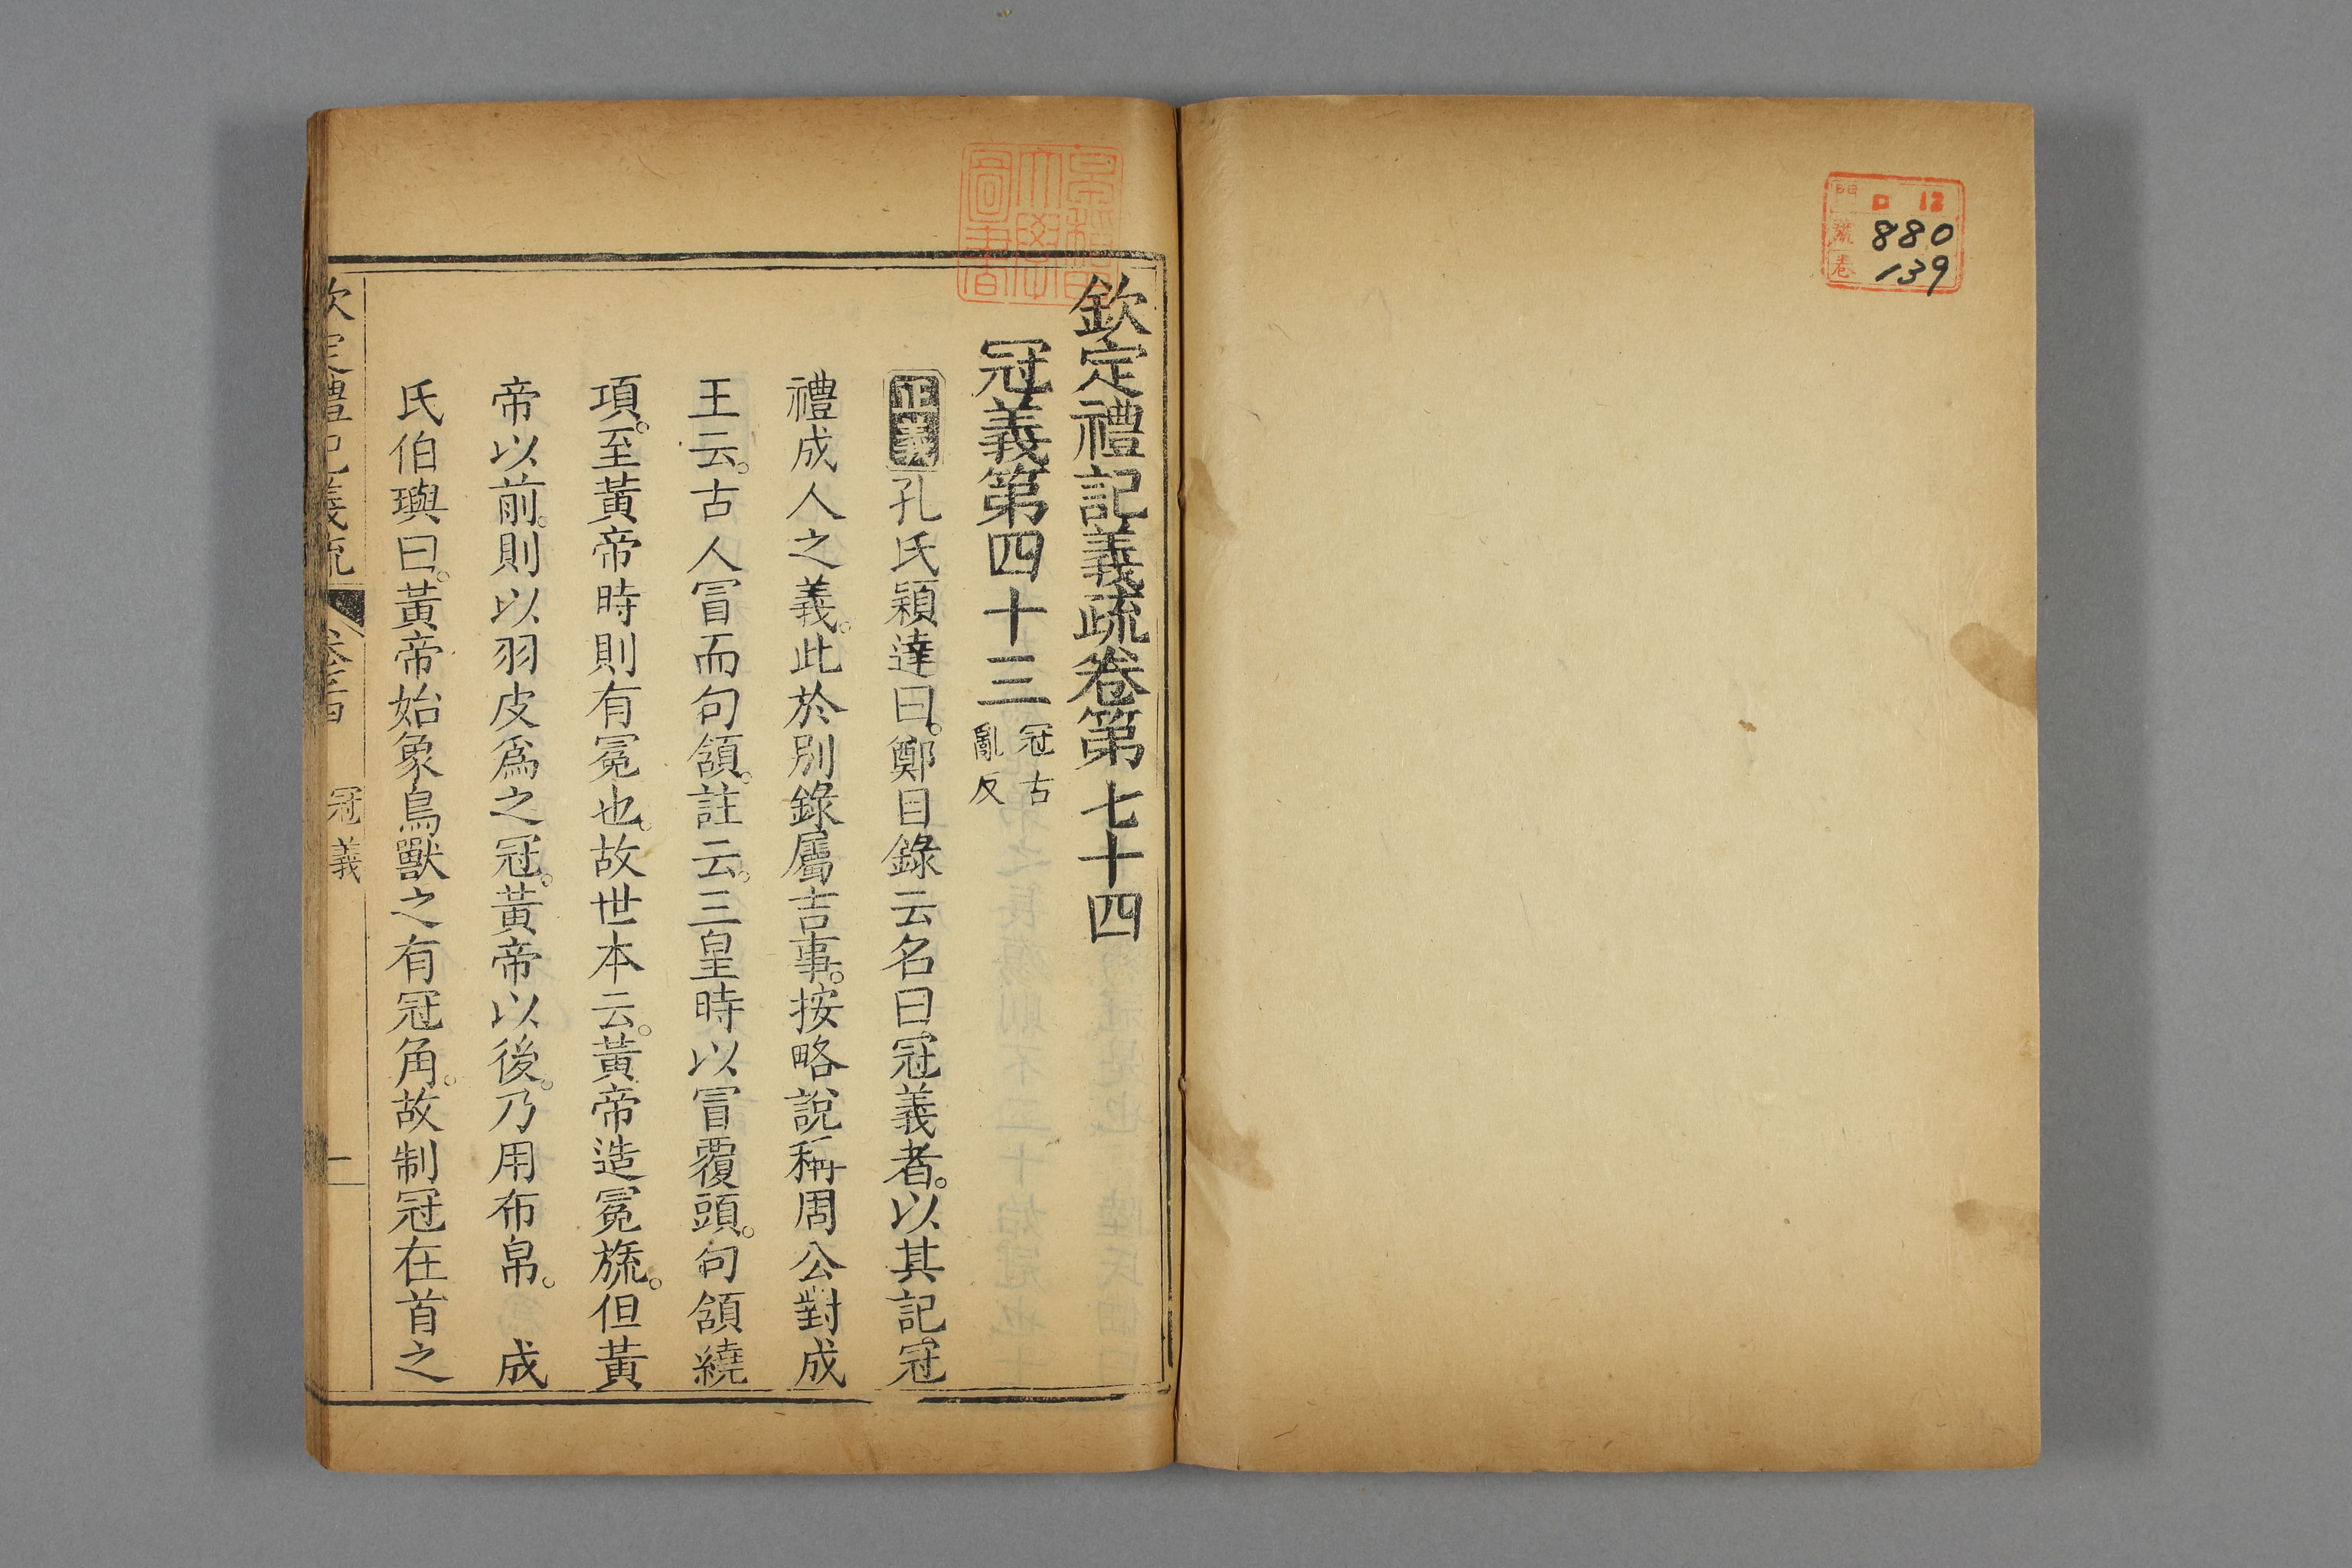 門 ロ 12
號 880
卷 139
早稻田大學圖書
欽定禮記義疏卷第七十四
冠義第四十三
冠古
亂反
正義孔氏穎達曰。鄭目錄云名曰冠義者。以其記冠
禮成人之義。此於別錄屬吉事。按略說稱周公對成
王云。古人冒而句領。註云。三皇時以冒覆頭。句頷繞
項。至黃帝時則有冕也。故世本云。黃帝造冕旒。但黃
帝以前。則以羽皮爲之冠。黃帝以後。乃用布帛。 成
氏伯璵曰。黃帝始象鳥獸之有冠角。故制冠在首之
欽定禮記義疏 卷七十四 冠義 一